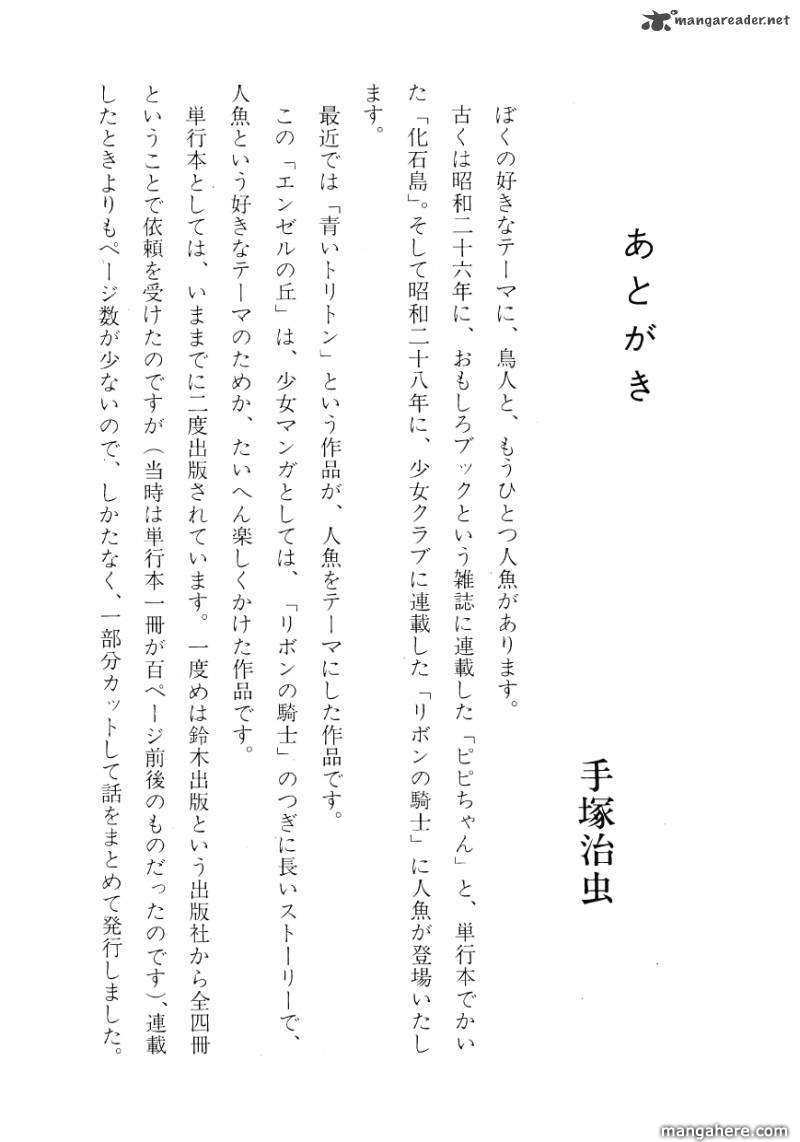 mangareader.net
あとがき
手塚治虫
ぼくの好きなテーマに、鳥人と、もうひとつ人魚があります。
古くは昭和二十六年に、おもしろブックという雑誌に連載した「ピピちゃん」と、単行本でかい
た「化石島」。そして昭和二十八年に、少女クラブに連載した「リボンの騎士」に人魚が登場いたし
ます。
最近では「青いトリトン」という作品が、人魚をテーマにした作品です。
この「エンゼルの丘」は、少女マンガとしては、「リボンの騎士」のつぎに長いストーリーで、
人魚という好きなテーマのためか、たいへん楽しくかけた作品です。
単行本としては、いままでに二度出版されています。一度めは鈴木出版という出版社から全四冊
ということで依頼を受けたのですが（当時は単行本一冊が百ページ前後のものだったのです）、連載
したときよりもページ数が少ないので、しかたなく、一部分カットして話をまとめて発行しました。
mangahere.com